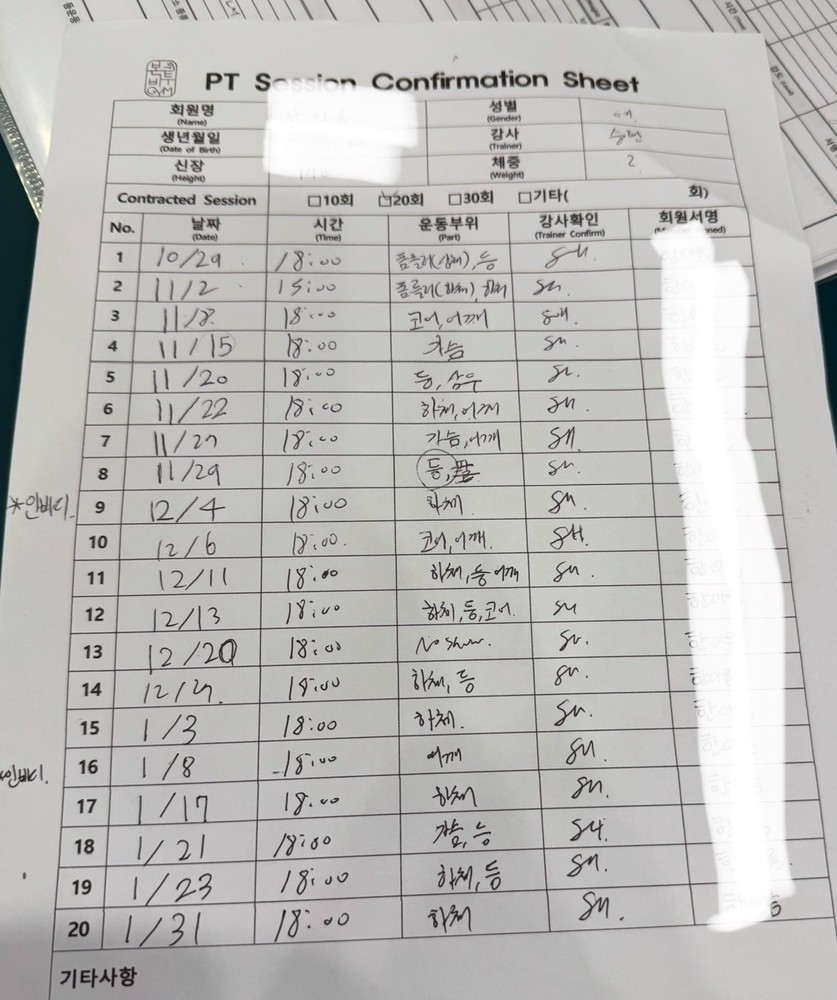 PT Session Confirmation Sheet
회원명 (Name) 성별 (Gender) 여.
생년월일 (Date of Birth) 강사 (Trainer)
신장 (Height) 체중 (Weight) 2
Contracted Session □10회 ☑20회 □30회 □기타( 회)
No. 날짜 (Date) 시간 (Time) 운동부위 (Part) 강사확인 (Trainer Confirm) 회원서명
1 10/29 18:00 폼롤러(상체), 등 SH.
2 11/2 15:00 폼롤러(하체), 하체 SH.
3 11/8. 18:00 코어, 어깨 SH.
4 11/15 18:00 가슴 SH.
5 11/20 18:00 등, 삼두 SH.
6 11/22 18:00 하체, 어깨 SH.
7 11/27 18:00 가슴, 어깨 SH.
8 11/29 18:00 등, SH.
*인바디. 9 12/4 18:00 하체. SH.
10 12/6 18:00. 코어, 어깨. SH.
11 12/11 18:00 하체, 등 어깨 SH.
12 12/13 18:00 하체, 등, 코어. SH
13 12/20 18:00 No show. SH.
14 12/27. 18:00 하체, 등 SH.
15 1/3 18:00 하체. SH.
*인바디. 16 1/8 18:00 어깨 SH.
17 1/17 18:00 하체 SH.
18 1/21 18:00 가슴, 등 SH.
19 1/23 18:00 하체, 등 SH.
20 1/31 18:00 하체 SH.
기타사항